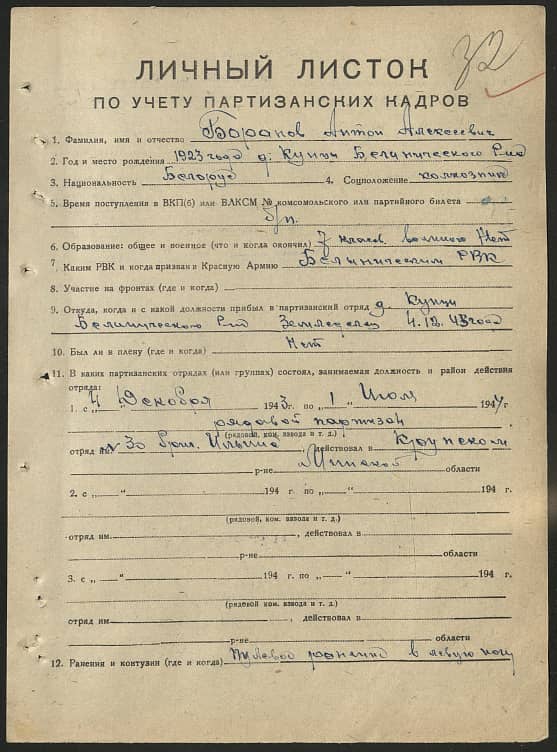 32
ЛИЧНЫЙ ЛИСТОК
ПО УЧЕТУ ПАРТИЗАНСКИХ КАДРОВ
1. Фамилия, имя и отчество Баранов Антон Алексеевич
2. Год и место рождения 1923 года д. Купци Белиничесского
3. Национальность Белорус 4. Соцположение колхозник
5. Время поступления в ВКП(б) или ВЛКСМ № комсомольского или партийного билета
б/п.
6. Образование: общее и военное (что и когда окончил) 7 классов военного Нет
7. Каким РВК и когда призван в Красную Армию Белиническим РВК
8. Участие на фронтах (где и когда)
9. Откуда, когда и с какой должности прибыл в партизанский отряд д. Купци
Белиничесского 4.12.43 года
10. Был ли в плену (где и когда) Нет
11. В каких партизанских отрядах (или группах) состоял, занимаемая должность и район действия
отряда:
1. с „4 " Декабря 1943 г. по „ 1 " Июля 1944 г
рядовой партизан
(рядовой, ком. взвода и т. д.)
отряд им. № 30 бриг. Ильина, действовал в Крупском
р-не Минской области
2. с „ " 194 г по „ " 194 г.
(рядовой, ком. взвода и т. д.)
отряд им. , действовал в
р-не области
3. с „ " 194 г по „ " 194 г.
(рядовой ком. взвода и т. д.)
отряд им , действовал в
р-не области
12. Ранения и контузии (где и когда) Пулевое ранение в левую ногу